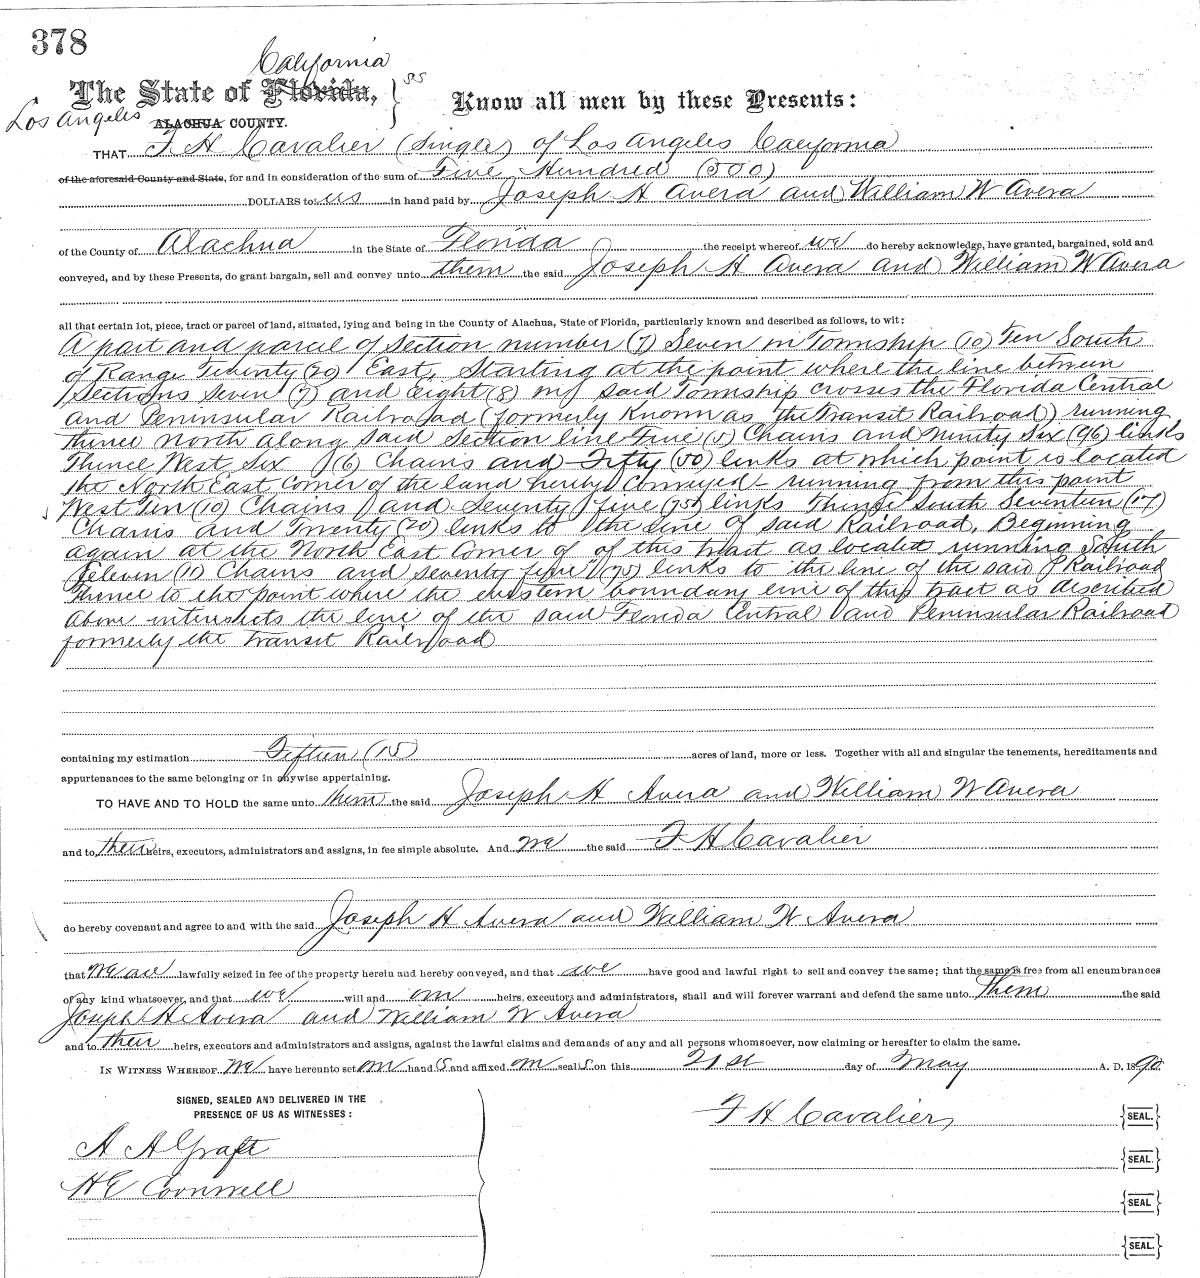 378
California
The State of Florida, } ss Know all men by these Presents:
Los Angeles ALACHUA COUNTY.
THAT F H Cavalier (single) of Los Angeles California
of the aforesaid County and State, for and in consideration of the sum of Five Hundred (500)
DOLLARS to us in hand paid by Joseph H Avera and William W Avera
of the County of Alachua in the State of Florida the receipt whereof we do hereby acknowledge, have granted, bargained, sold and
conveyed, and by these Presents, do grant bargain, sell and convey unto them the said Joseph H Avera and William W Avera
all that certain lot, piece, tract or parcel of land, situated, lying and being in the County of Alachua, State of Florida, particularly known and described as follows, to wit:
A part and parcel of Section number (7) Seven in Township (10) Ten South
of Range Twenty (20) East, Starting at the point where the line between
Sections Seven (7) and Eight (8) in said Township crosses the Florida Central
and Peninsular Railroad (formerly Known as the Transit Railroad) running
thence north along said Section line Five (5) Chains and Ninety Six (96) links
Thence West Six (6) Chains and Fifty (50) links at which point is located
the North East Corner of the land hereby conveyed - running from this point
West Ten (10) Chains and Seventy five (75) links Thence South Seventeen (17)
Chains and Twenty (20) links to the line of said Railroad. Beginning
again at the North East Corner of of this tract as located running South
Eleven (11) Chains and seventy five (75) links to the line of the said Railroad
thence to the point where the eastern boundary line of this tract as described
above intersects the line of the said Florida Central and Peninsular Railroad
formerly the Transit Railroad
containing my estimation Fifteen (15) acres of land, more or less. Together with all and singular the tenements, hereditaments and
appurtenances to the same belonging or in anywise appertaining.
TO HAVE AND TO HOLD the same unto them the said Joseph H Avera and William W Avera
and to their heirs, executors, administrators and assigns, in fee simple absolute. And we the said F H Cavalier
do hereby covenant and agree to and with the said Joseph H Avera and William W Avera
that we are lawfully seized in fee of the property herein and hereby conveyed, and that we have good and lawful right to sell and convey the same; that the same is free from all encumbrances
of any kind whatsoever, and that we will and our heirs, executors and administrators, shall and will forever warrant and defend the same unto them the said
Joseph H Avera and William W Avera
and to their heirs, executors and administrators and assigns, against the lawful claims and demands of any and all persons whomsoever, now claiming or hereafter to claim the same.
IN WITNESS WHEREOF we have hereunto set our hand s and affixed our seal s on this 21st day of May A. D. 1890
SIGNED, SEALED AND DELIVERED IN THE
PRESENCE OF US AS WITNESSES:
F H Cavalier {SEAL.}
A A Graft
{SEAL.}
H E Cornwell
{SEAL}
{SEAL.}